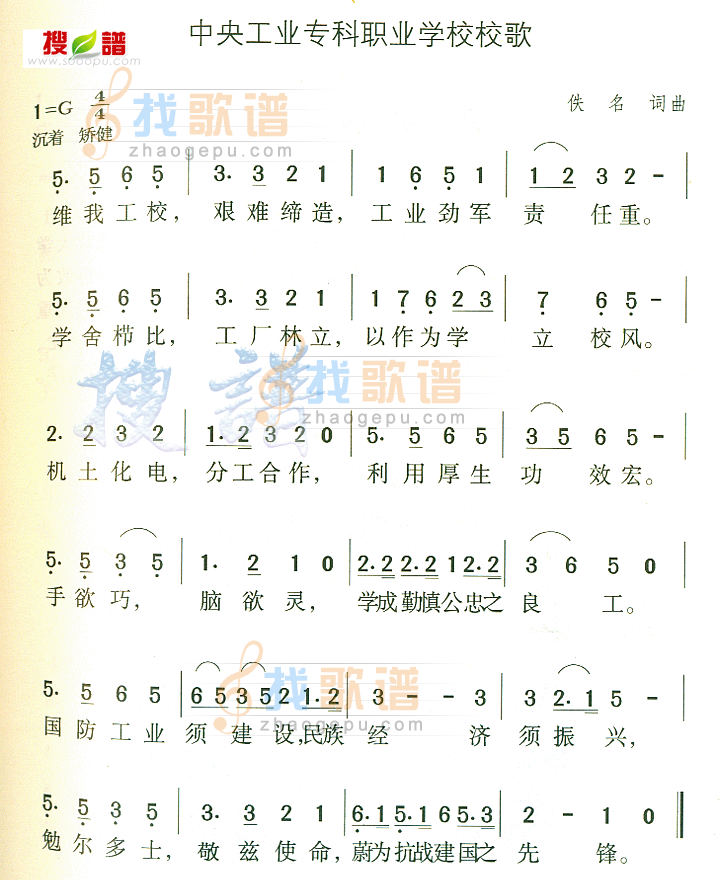 搜谱
www.sooopu.com
中央工业专科职业学校校歌
1=G 4/4
佚 名 词曲
沉着 矫健
找歌谱
zhaogepu.com
5. 5 6 5 | 3. 3 2 1 | 1 6 5 1 | 1 2 3 2 - |
维我工校， 艰难缔造， 工业劲军 责 任重。
5. 5 6 5 | 3. 3 2 1 | 1 7 6 2 3 | 7 6 5 - |
学舍栉比， 工厂林立， 以作为学 立 校风。
搜譜
找歌谱
zhaogepu.com
2. 2 3 2 | 1. 2 3 2 0 | 5. 5 6 5 | 3 5 6 5 - |
机土化电， 分工合作， 利用厚生 功 效宏。
5. 5 3 5 | 1. 2 1 0 | 2. 2 2. 2 1 2. 2 | 3 6 5 0 |
手欲巧， 脑欲灵， 学成勤慎公忠之 良 工。
找歌谱
zhaogepu.com
5. 5 6 5 | 6 5 3 5 2 1. 2 | 3 - - 3 | 3 2. 1 5 - |
国防工业 须建设,民族 经 济 须振兴，
5. 5 3 5 | 3. 3 2 1 | 6. 1 5. 1 6 5. 3 | 2 - 1 0 ||
勉尔多士， 敬兹使命， 蔚为抗战建国之 先 锋。